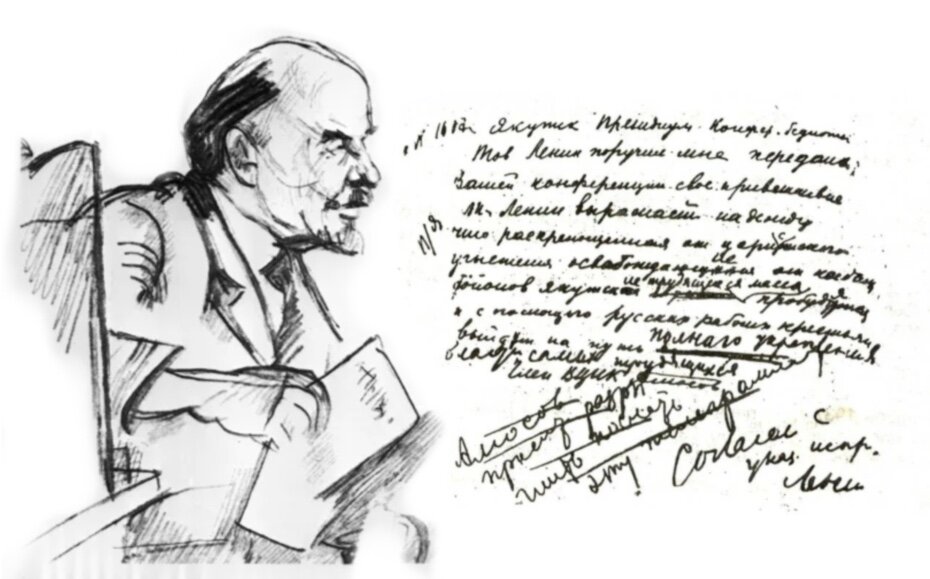 Якутск Президиум Конфер. бедноты
Тов Ленин поручил мне передать
Вашей конференции свое приветствие
Ленин выражает надежду
что раскрепощенная от царийского
угнетения освобождающаяся от кабалы
тойонов якутская трудящаяся масса пробудится
и с помощью русских рабочих крестьян
выйдет на путь полнаго укрепления
власти самих трудящихся
член ВЦИК Аммосов
Аммосов
просит разре
шить послать
эту телеграмму
Согласен с
указ. испр.
Ленин